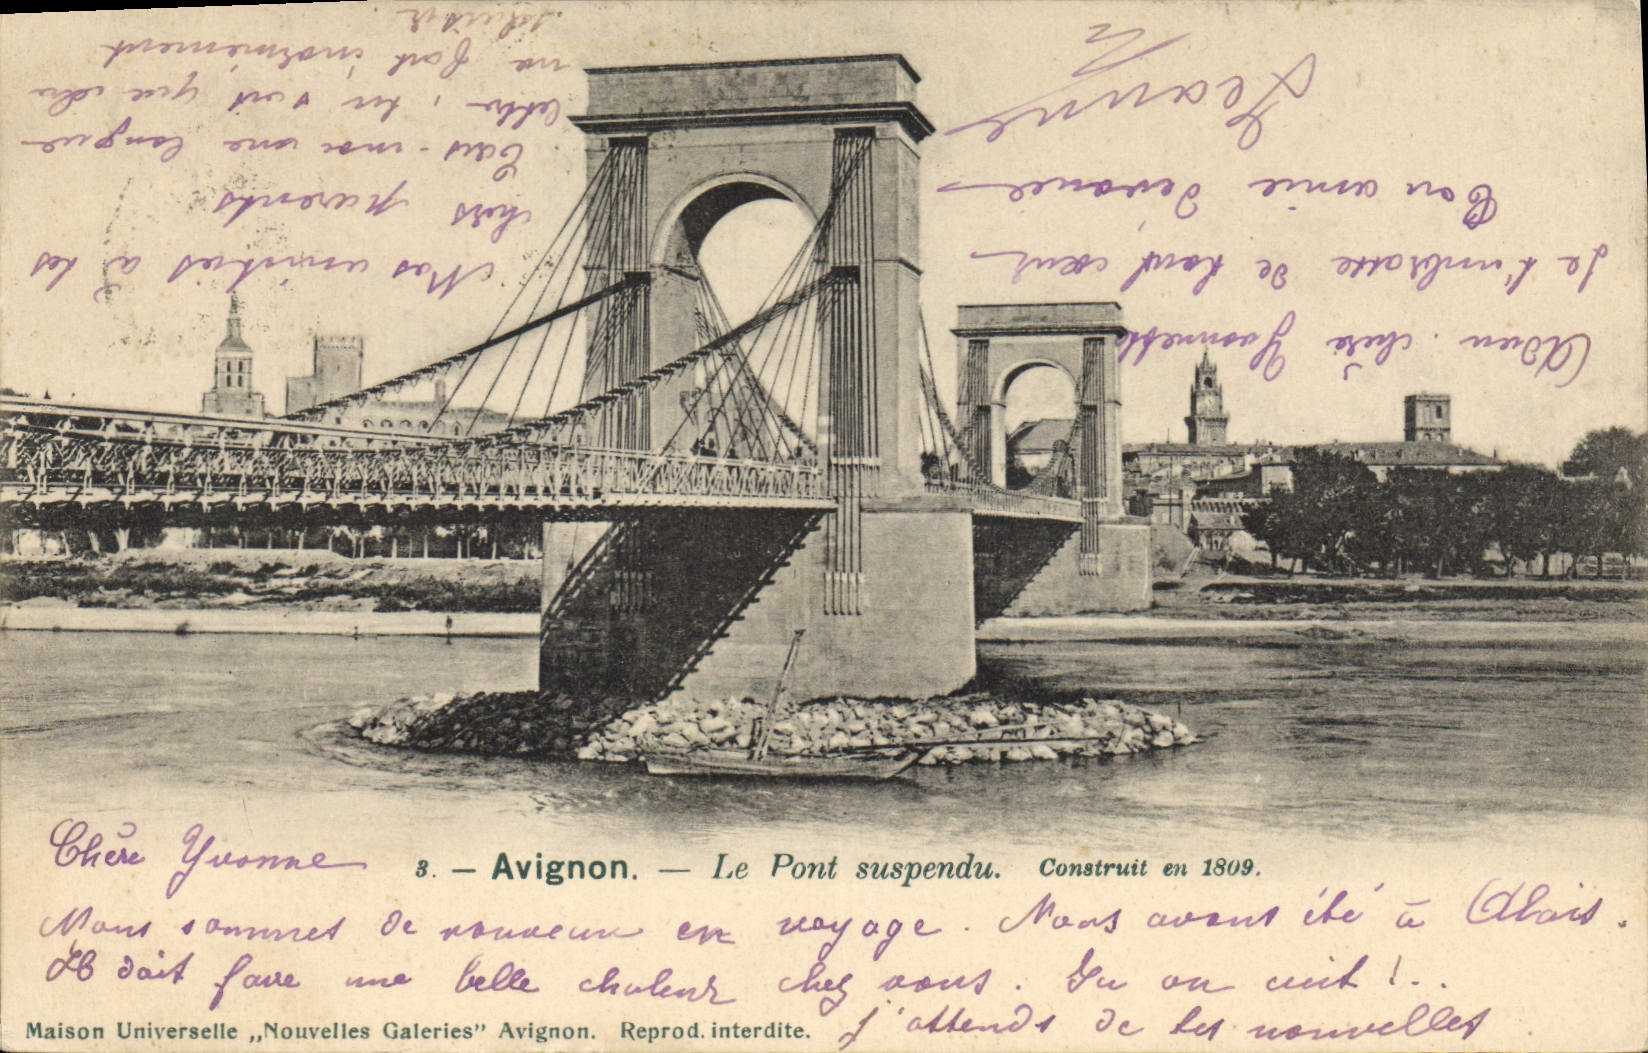 Chère Yvonne
3. — Avignon. — Le Pont suspendu. Construit en 1809.
Nous sommes de nouveau en voyage. Nous avons été à Alais.
Il doit faire une belle chaleur chez vous. Ici on cuit !..
J'attends de tes nouvelles
Maison Universelle „Nouvelles Galeries" Avignon. Reprod. interdite.
Adieu chère Yvonnette
Je t'embrasse de tout cœur
Ton amie dévouée
Jeanne
Mes amitiés à tes
chers parents.
Ecris-moi une longue
lettre, tu sais que cela
me fait énormément
plaisir